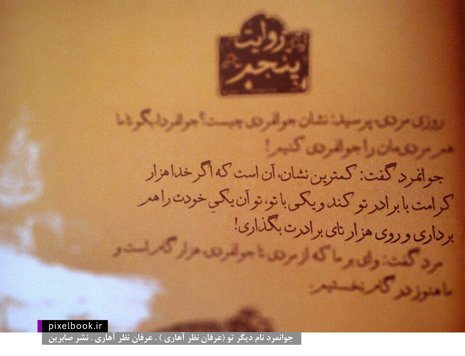 روایت
پنجم
روزی مردی پرسید: نشان جوانمردی چیست؟ جوانمردا بگو تا ما
هم مردی‌مان را جوانمردی کنیم!
جوانمرد گفت: کمترین نشان، آن است که اگر خدا هزار
کرامت با برادر تو کند و یکی با تو، تو آن یکیِ خودت را هم
برداری و روی هزار تای برادرت بگذاری!
مرد گفت: وای بر ما که از مردی تا جوانمردی هزار گام است و
ما هنوز در گام نخستیم.
pixelbook.ir
جوانمرد نام دیگر تو (عرفان نظر آهاری ) . عرفان نظر آهاری . نشر صابرین